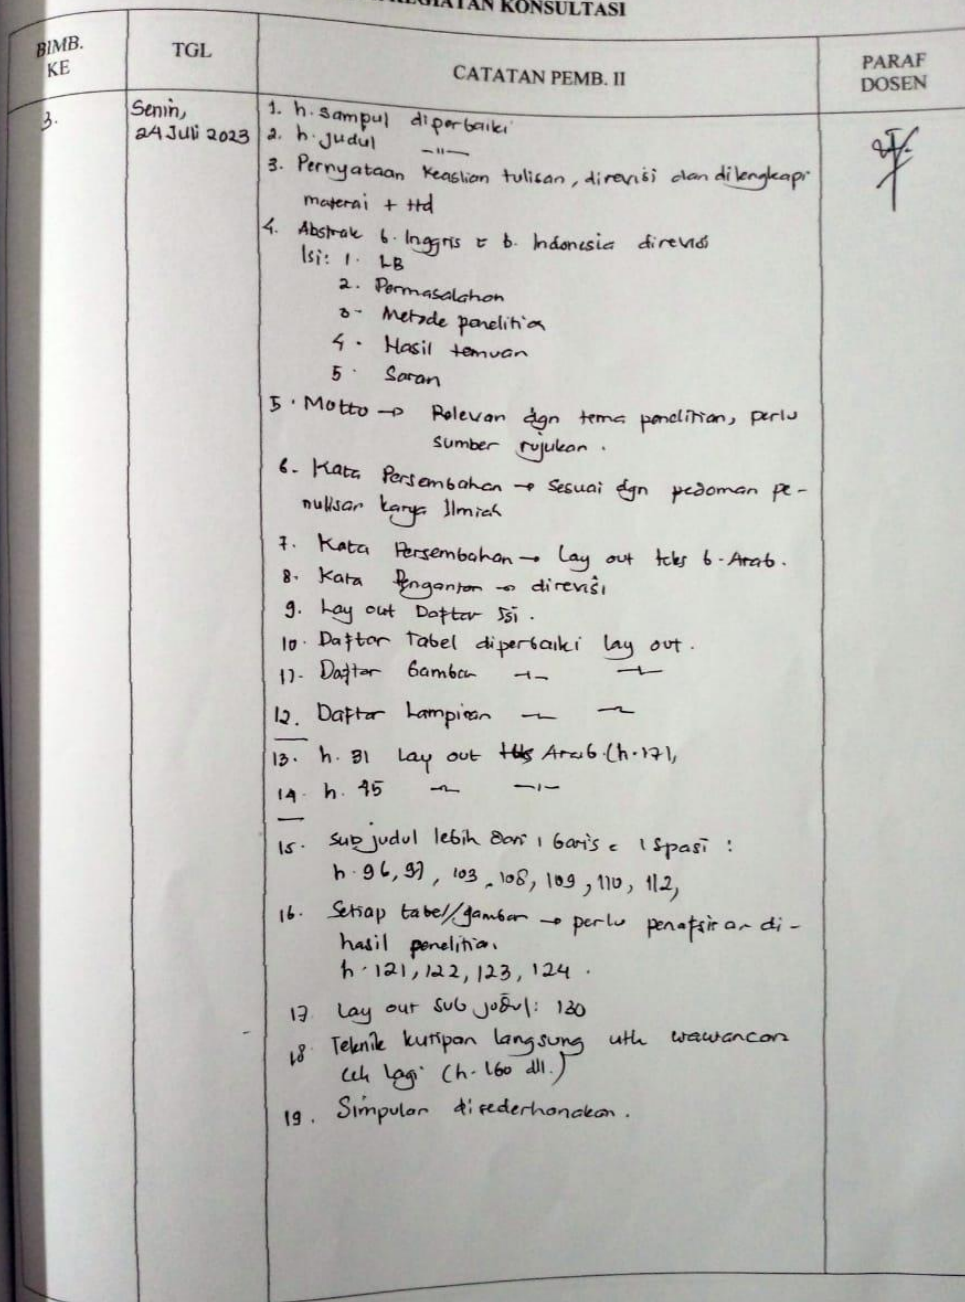 KEGIATAN KONSULTASI
BIMB. KE
TGL
CATATAN PEMB. II
PARAF DOSEN
3.
Senin,
24 Juli 2023
1. h. sampul diperbaiki
2. h. judul -"-
3. Pernyataan keaslian tulisan, direvisi dan dilengkapi
materai + ttd
4. Abstrak b. Inggris & b. Indonesia direvisi
Isi: 1. LB
2. Permasalahan
3. Metode penelitian
4. Hasil temuan
5. Saran
5. Motto → Relevan dgn tema penelitian, perlu
sumber rujukan.
6. Kata Persembahan → sesuai dgn pedoman pe-
nulisan karya Ilmiah
7. Kata Persembahan → Lay out teks b. Arab.
8. Kata Pengantar → direvisi
9. Lay out Daftar Isi.
10. Daftar Tabel diperbaiki lay out.
11. Daftar Gambar -"- -"-
12. Daftar Lampiran -"- -"-
13. h. 31 Lay out teks Arab (h. 17),
14. h. 45 -"- -"-
15. Sub judul lebih dari 1 baris = 1 spasi :
h. 96, 97, 103, 108, 109, 110, 112,
16. Setiap tabel/gambar → perlu penafsiran di-
hasil penelitian
h. 121, 122, 123, 124.
17. Lay out sub judul: 130
18. Teknik kutipan langsung utk wawancara
cek lagi (h. 160 dll.)
19. Simpulan disederhanakan.